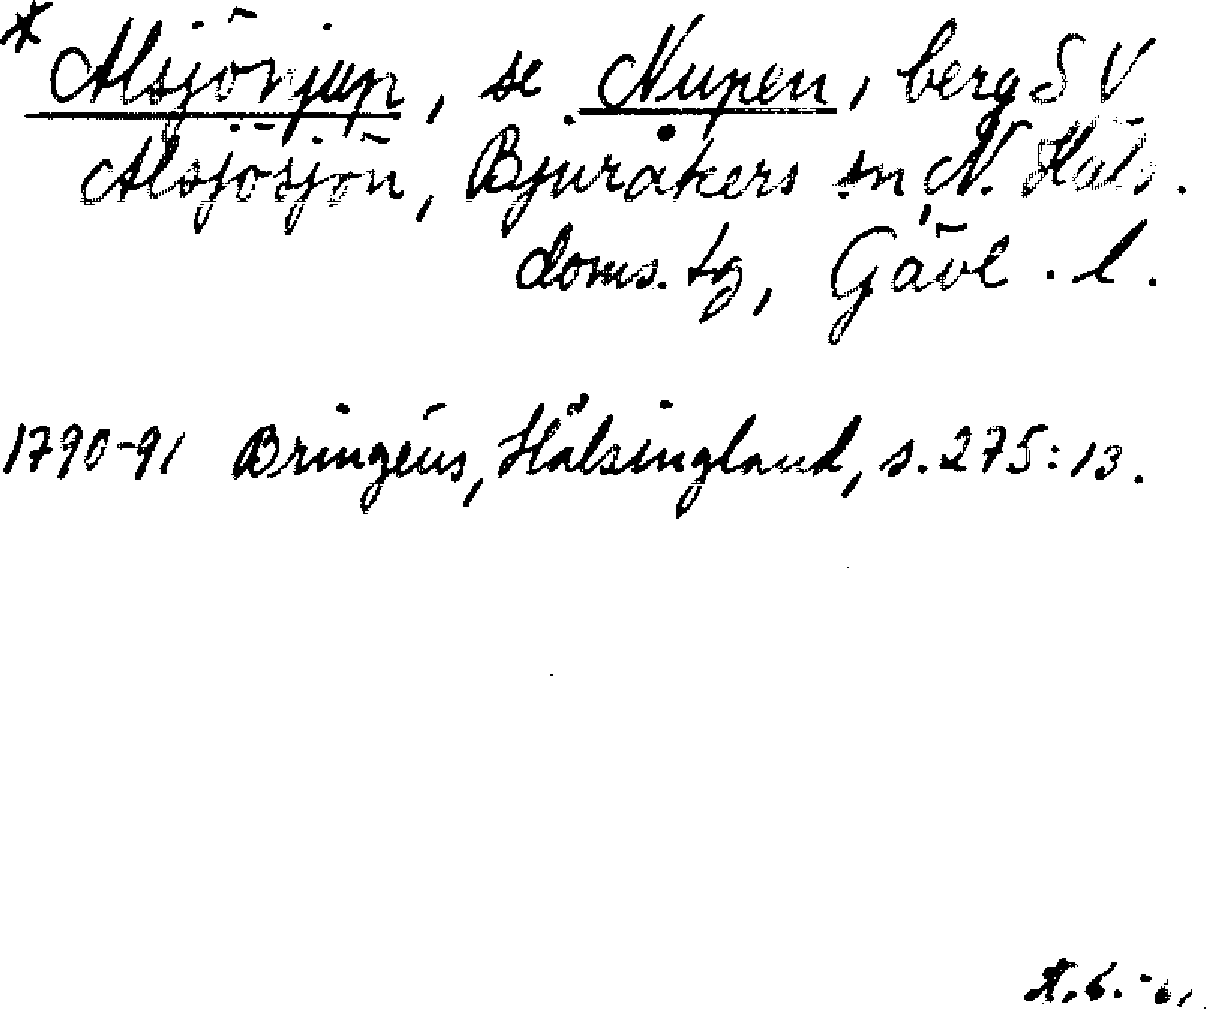 * Alsjönjup, se Nupen, berg SV
Alsjösjön, Bjuråkers sn, N. Häls.
doms. tg, Gävl. l.
1790-91 Bringéus, Hälsingland, s. 275:13.